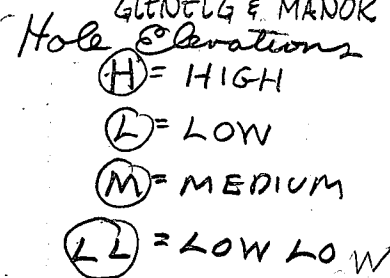 GLENELG & MANOK
Hole Elevations
H = HIGH
L = LOW
M = MEDIUM
LL = LOW LOW